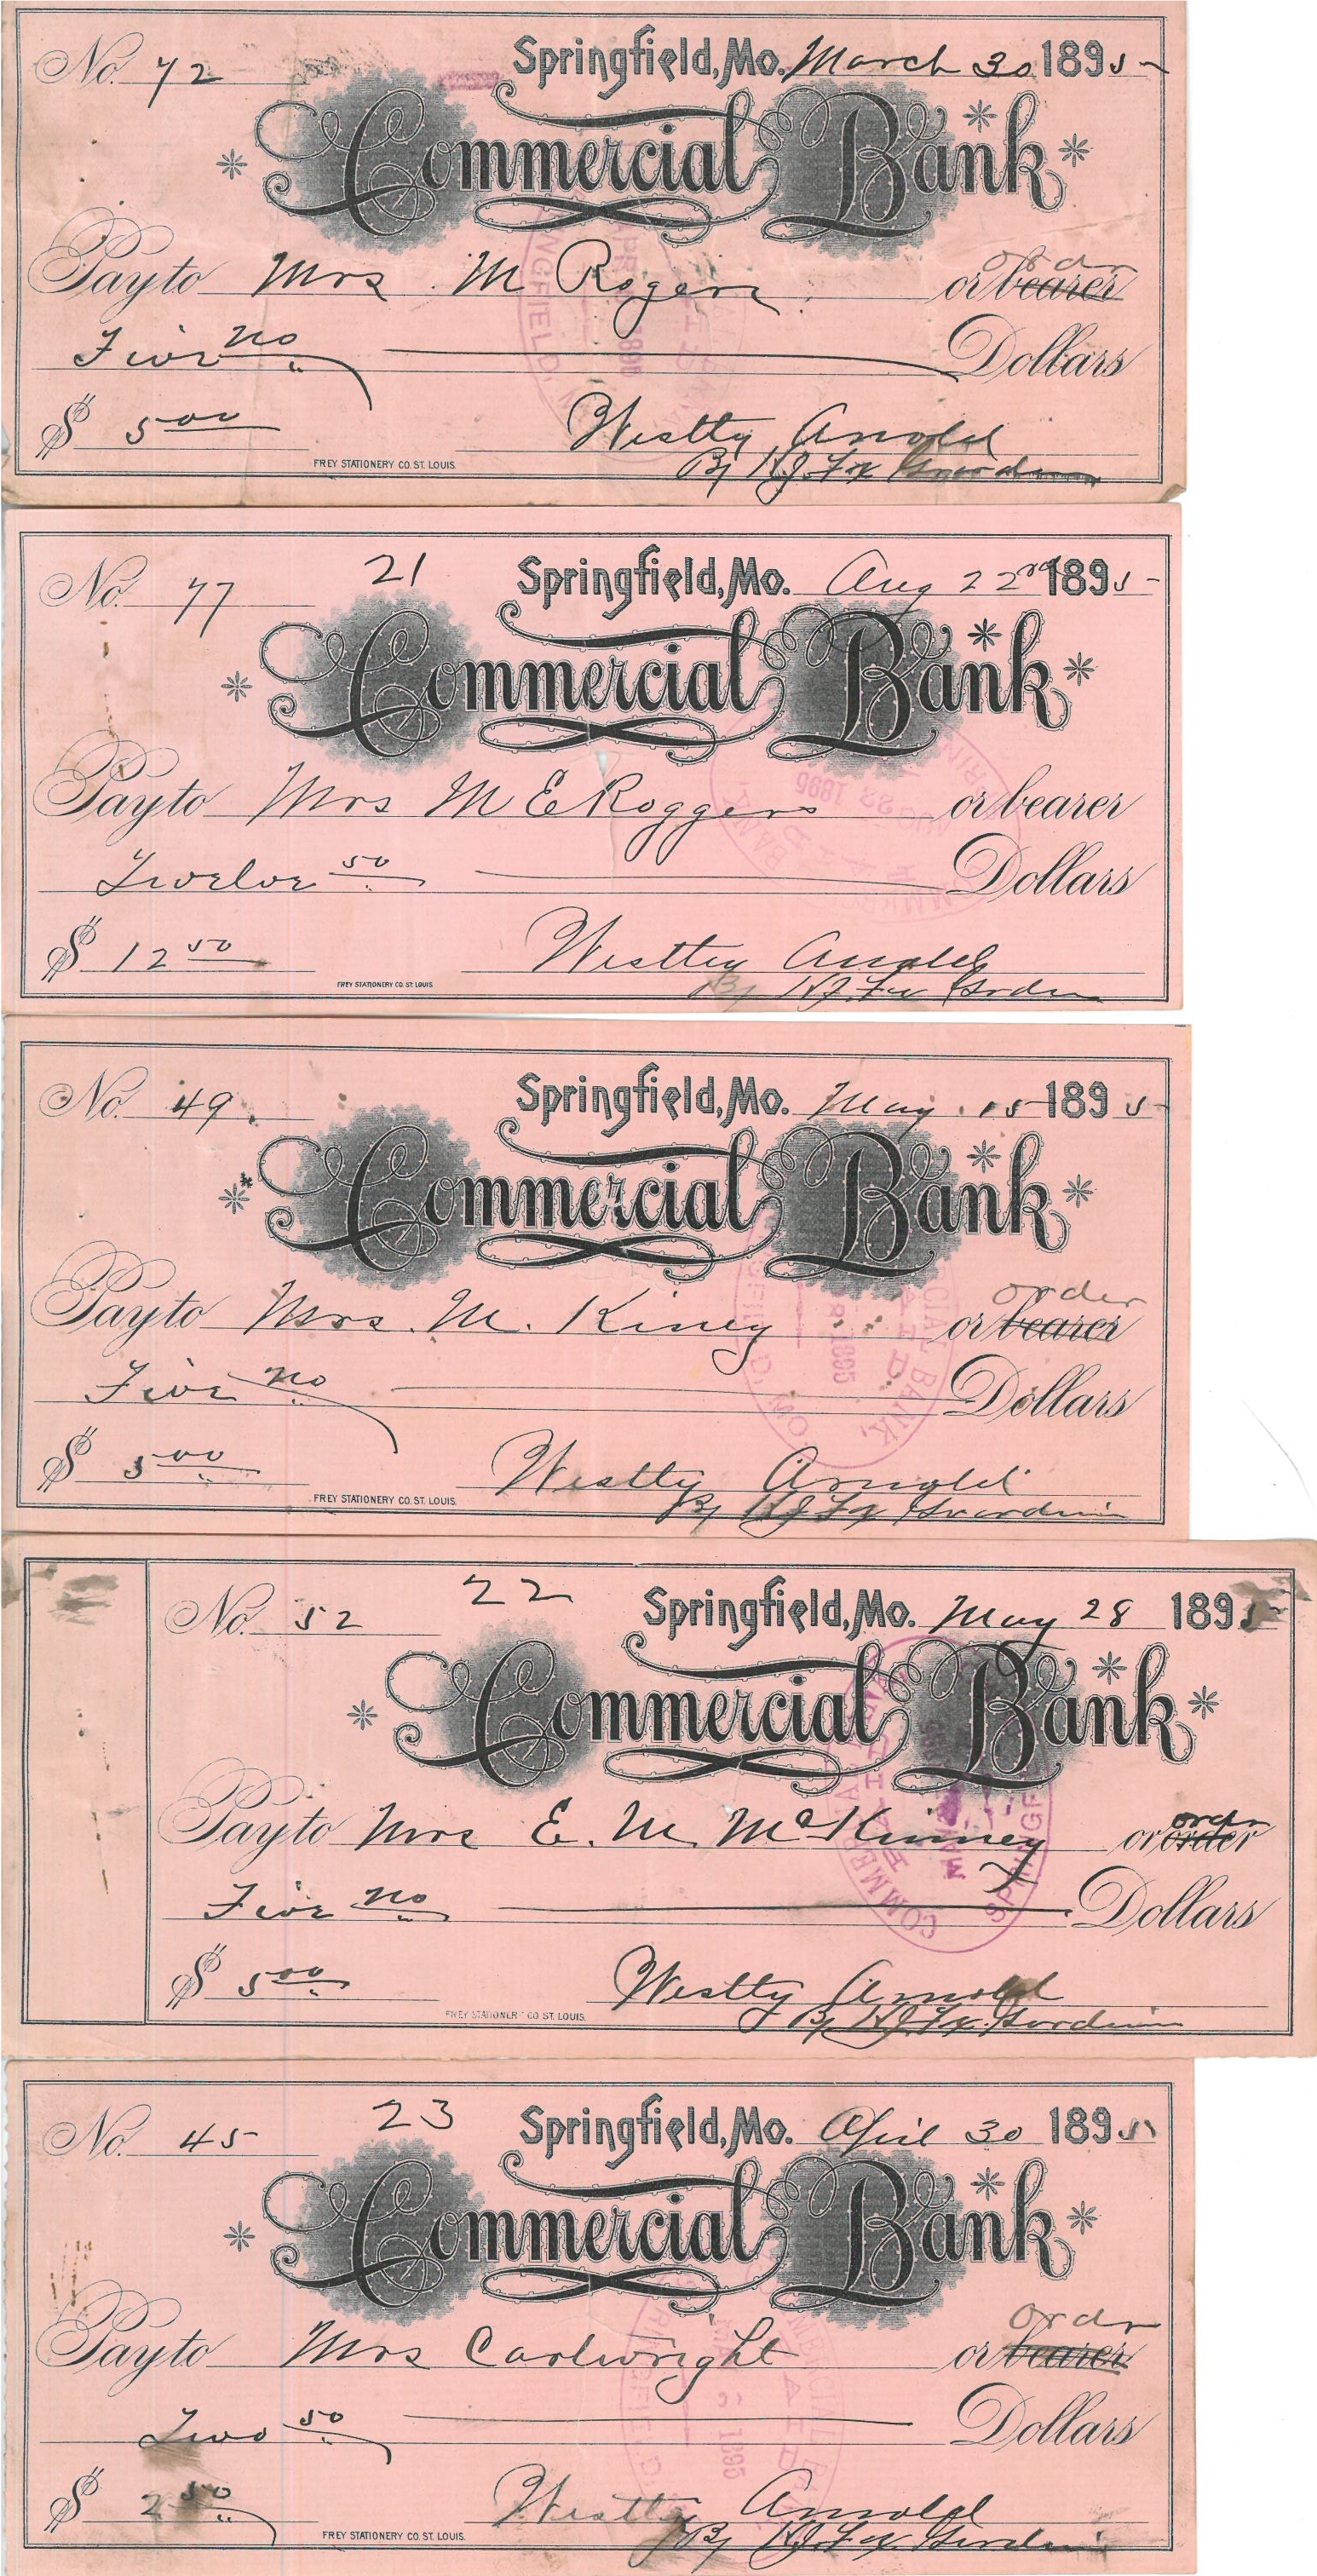 No. 72 Springfield, Mo. March 30 1895
Commercial Bank
order
Pay to Mrs. M Rogers or bearer
Five no Dollars
$ 5 00 Westty Arnold
By H.J. Fox
FREY STATIONERY CO. ST. LOUIS.
21
No. 77 Springfield, Mo. Aug 22nd 1895
Commercial Bank
Pay to Mrs M E Roggers or bearer
Twelve 50 Dollars
$ 12 50 Westtey Arnold
By H.J. Fox Gardn
FREY STATIONERY CO. ST. LOUIS
No. 49. Springfield, Mo. May. 15 1895
Commercial Bank
order
Pay to Mrs. M. Kiney or bearer
Five no Dollars
$ 5 00 Westty Arnold
By H J Fox Guardian
FREY STATIONERY CO. ST. LOUIS.
22
No. 52 Springfield, Mo. May 28 1895
Commercial Bank
order
Pay to Mrs E. M. McKinney or order
Five no Dollars
$ 5 00 Westty Arnold
By H.J. Fox. Guardian
FREY STATIONERY CO. ST. LOUIS.
COMMERCIAL BANK
PAID
23
No. 45 Springfield, Mo. April 30 1895
Commercial Bank
order
Pay to Mrs Cartwright or bearer
Two 50 Dollars
$ 2 50 Westty Arnold
By H.J. Fox Guardian
FREY STATIONERY CO. ST. LOUIS.